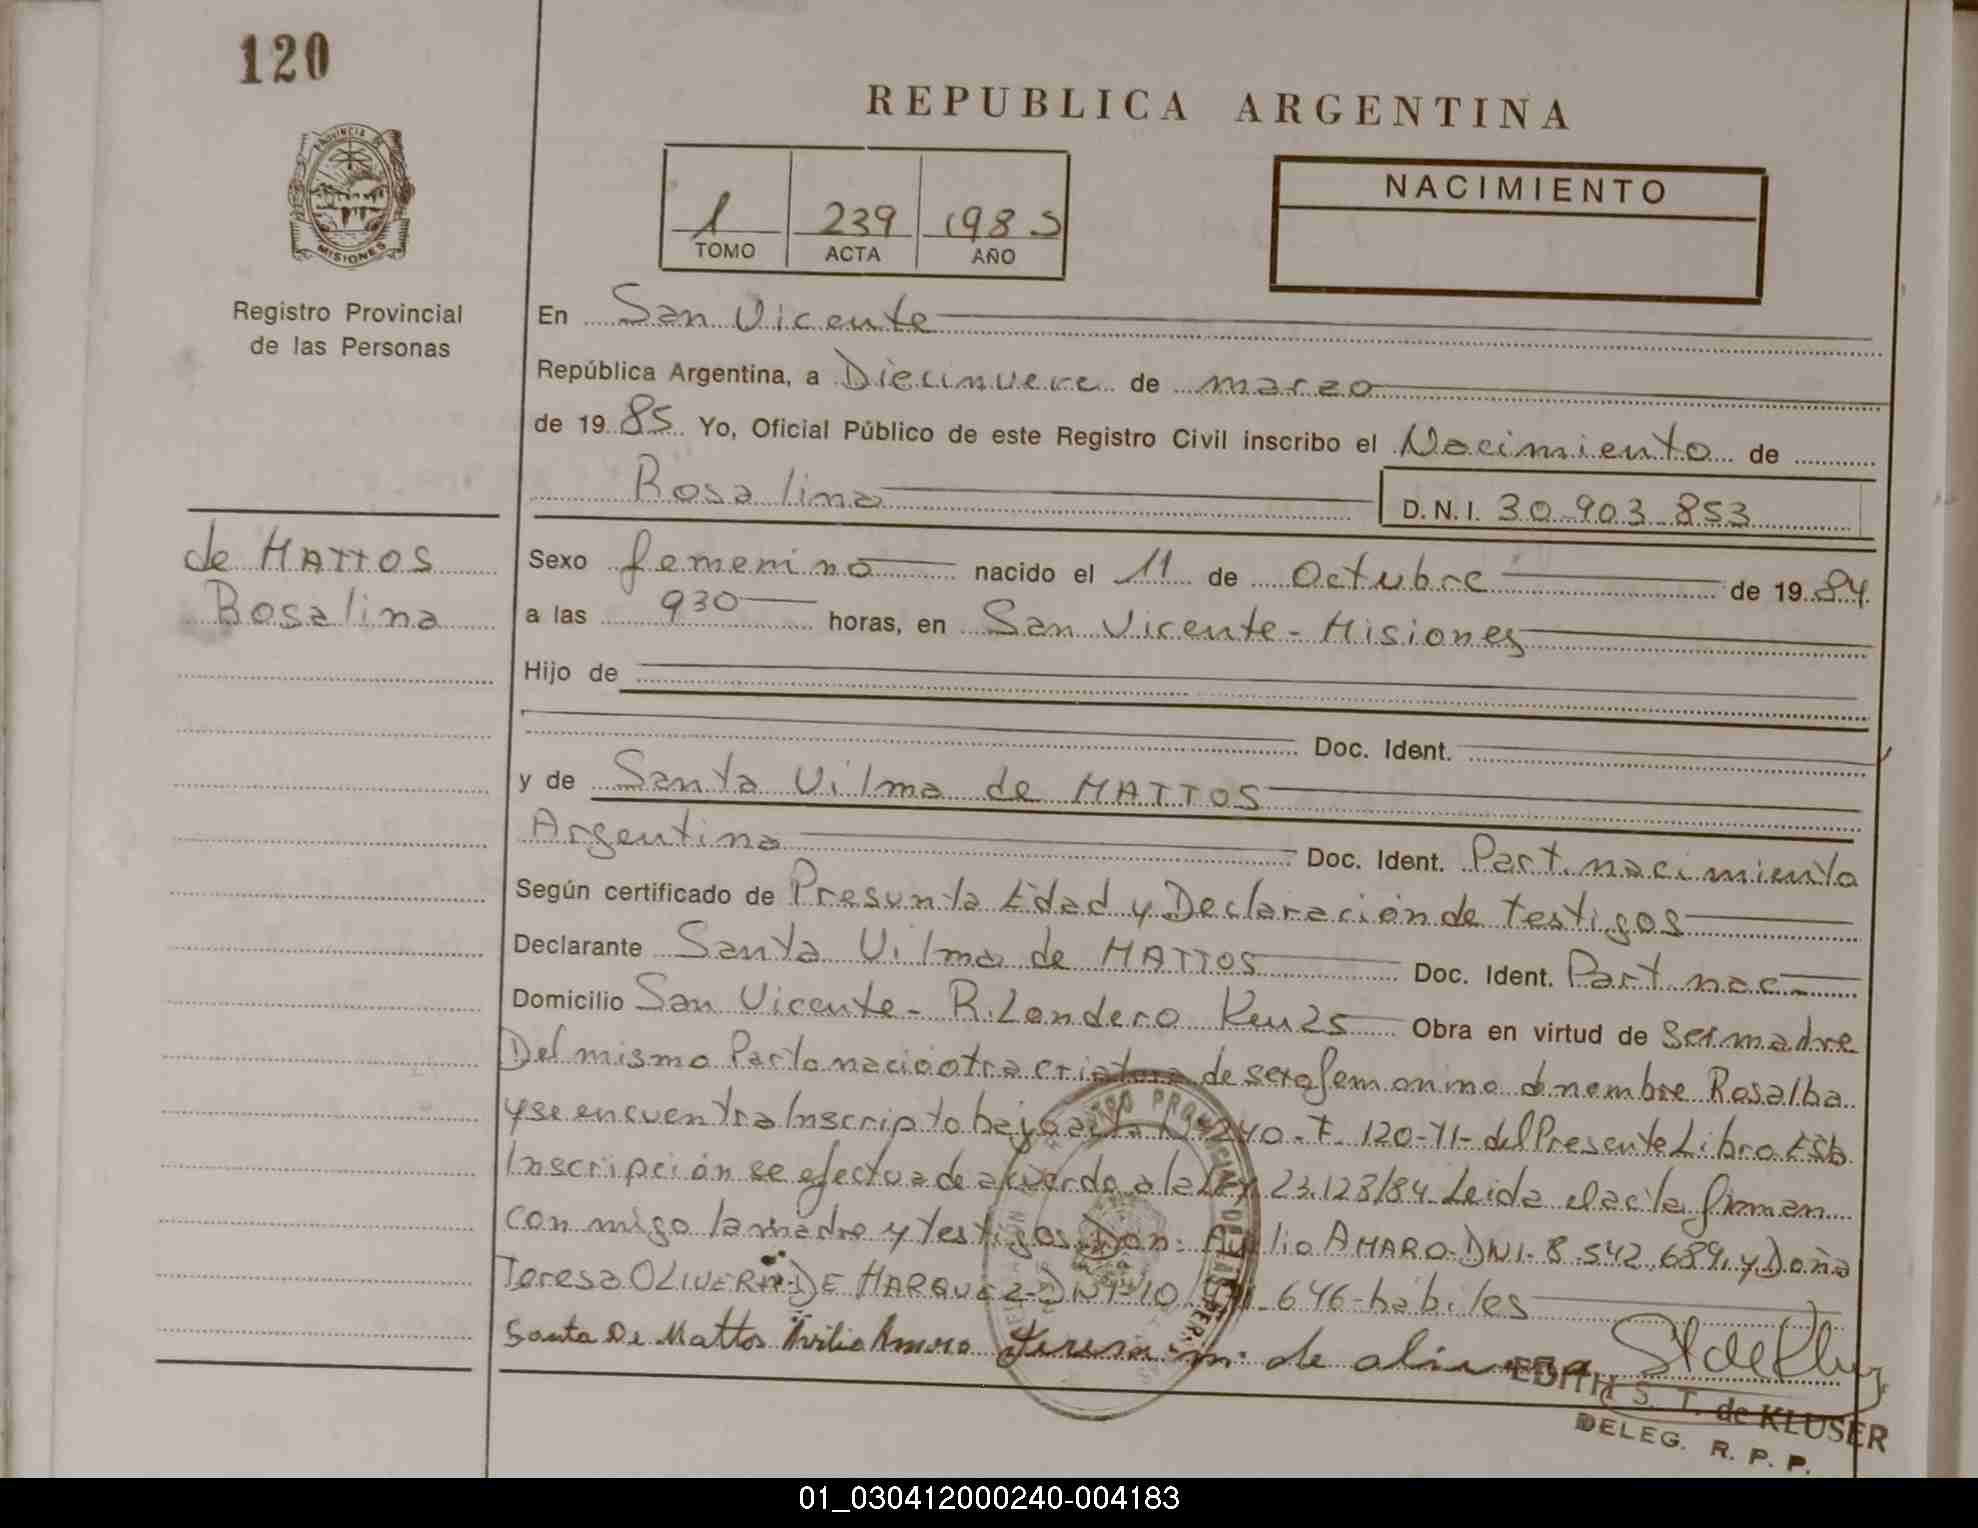 120
REPUBLICA ARGENTINA
PROVINCIA DE MISIONES
1 239 1985
TOMO ACTA AÑO
NACIMIENTO
Registro Provincial
de las Personas
En San Vicente
República Argentina, a Diecinueve de marzo
de 1985 Yo, Oficial Público de este Registro Civil inscribo el Nacimiento de
Rosalina D.N.I. 30.903.853
de MATTOS
Rosalina
Sexo femenino nacido el 11 de Octubre de 1984
a las 930 horas, en San Vicente - Misiones
Hijo de
Doc. Ident.
y de Santa Vilma de MATTOS
Argentina Doc. Ident. Part. nacimiento
Según certificado de Presunta Edad y Declaración de testigos
Declarante Santa Vilma de MATTOS Doc. Ident. Part. nac.
Domicilio San Vicente - R. Londero Km 25 Obra en virtud de ser madre
Del mismo Parto nacio otra criatura de sexo femenino de nombre Rosalba
y se encuentra Inscripto bajo acta 240 - F. 120 - T1 - del Presente Libro Esta
Inscripción se efectua de acuerdo a la Ley 23.128/84. Leida el acta firman
con migo la madre y testigos Don: AMARO - DNI - 8.542.689. y Doña
Teresa OLIVERA DE MARQUEZ - DNI - 10 646 - habiles
Santa De Mattos Avilio Amaro Teresa m. de olivera
EDITH S. T. de KLUSER
DELEG. R. P. P.
01_030412000240-004183